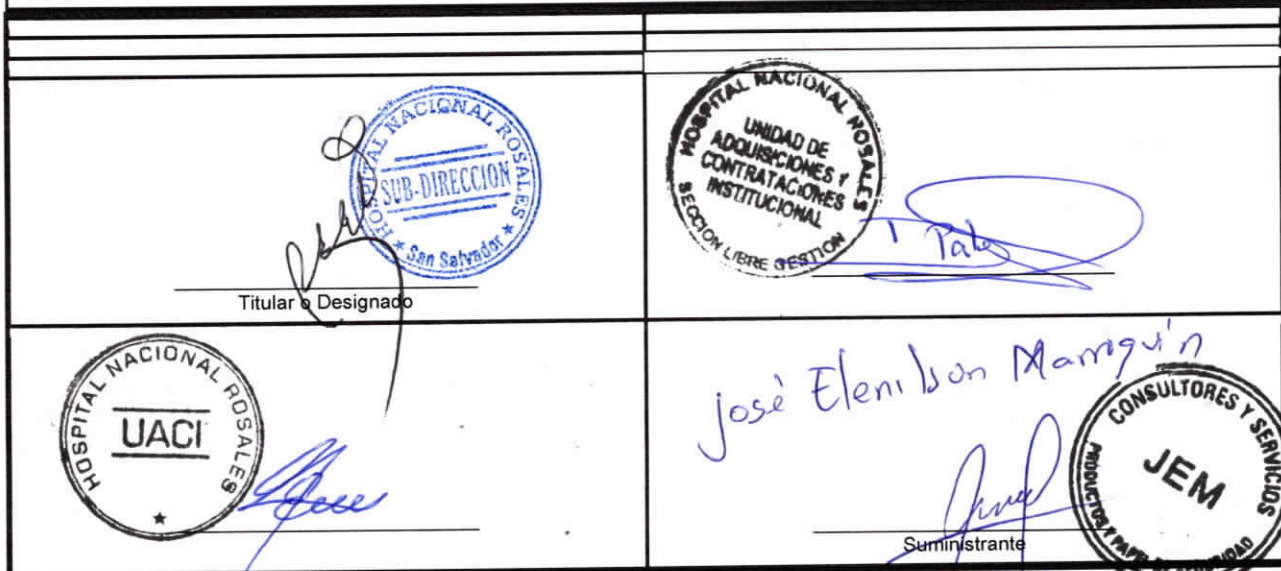 HOSPITAL NACIONAL ROSALES
SUB-DIRECCION
★ San Salvador ★
Titular o Designado
HOSPITAL NACIONAL ROSALES
UNIDAD DE
ADQUISICIONES Y
CONTRATACIONES
INSTITUCIONAL
SECCION LIBRE GESTION
HOSPITAL NACIONAL ROSALES
UACI
★
José Elenilson Marroquín
CONSULTORES Y SERVICIOS
JEM
PRODUCTOS Y PAPEL DE SEGURIDAD
Suministrante